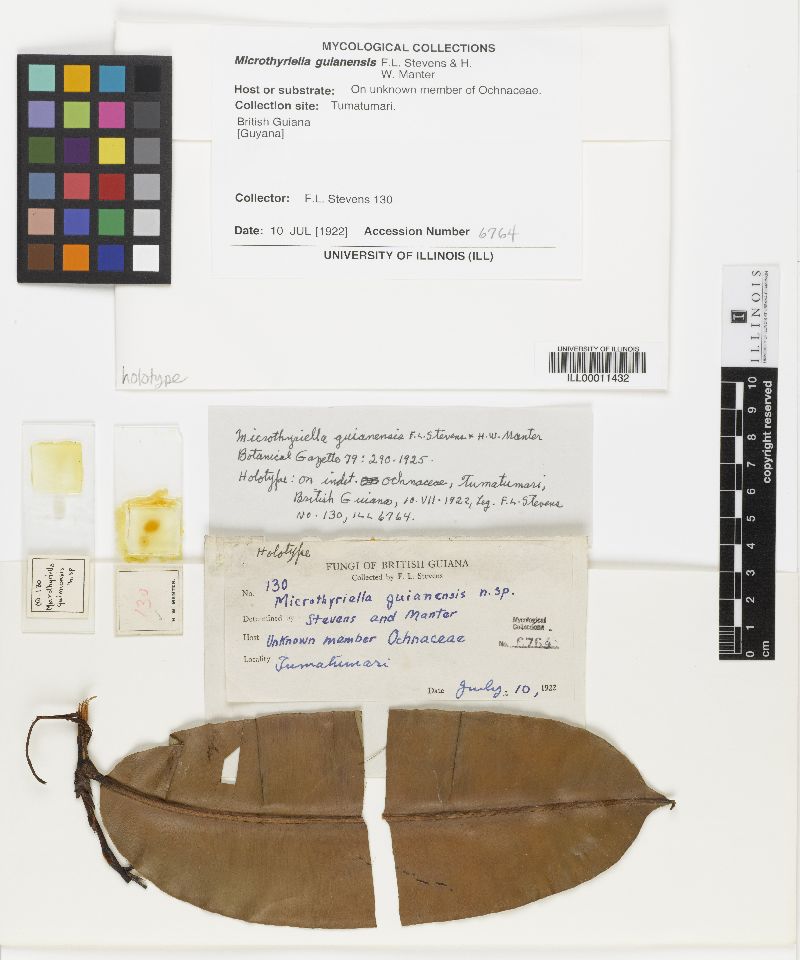 MYCOLOGICAL COLLECTIONS
Microthyriella guianensis F.L. Stevens & H.
W. Manter
Host or substrate: On unknown member of Ochnaceae.
Collection site: Tumatumari.
British Guiana
[Guyana]
Collector: F.L. Stevens 130
Date: 10 JUL [1922] Accession Number 6764
UNIVERSITY OF ILLINOIS (ILL)
holotype
UNIVERSITY OF ILLINOIS
ILL00011432
ILLINOIS
0 1 2 3 4 5 6 7 8 9 10
cm
copyright reserved
Microthyriella guianensis F.L. Stevens & H.W. Manter
Botanical Gazette 79: 290. 1925.
Holotype: on indet. Ochnaceae, Tumatumari,
British Guiana, 10.VII.1922, Leg. F.L. Stevens
No. 130, ILL 6764.
No 130
Microthyriella
guianensis
n.sp
130
H. W. MANTER
Holotype
FUNGI OF BRITISH GUIANA
Collected by F. L. Stevens
No. 130
Microthyriella guianensis n.sp.
Determined by Stevens and Manter
Host Unknown member Ochnaceae
Locality Tumatumari
Mycological
Collections
No. 6764
Date July, 10, 1922